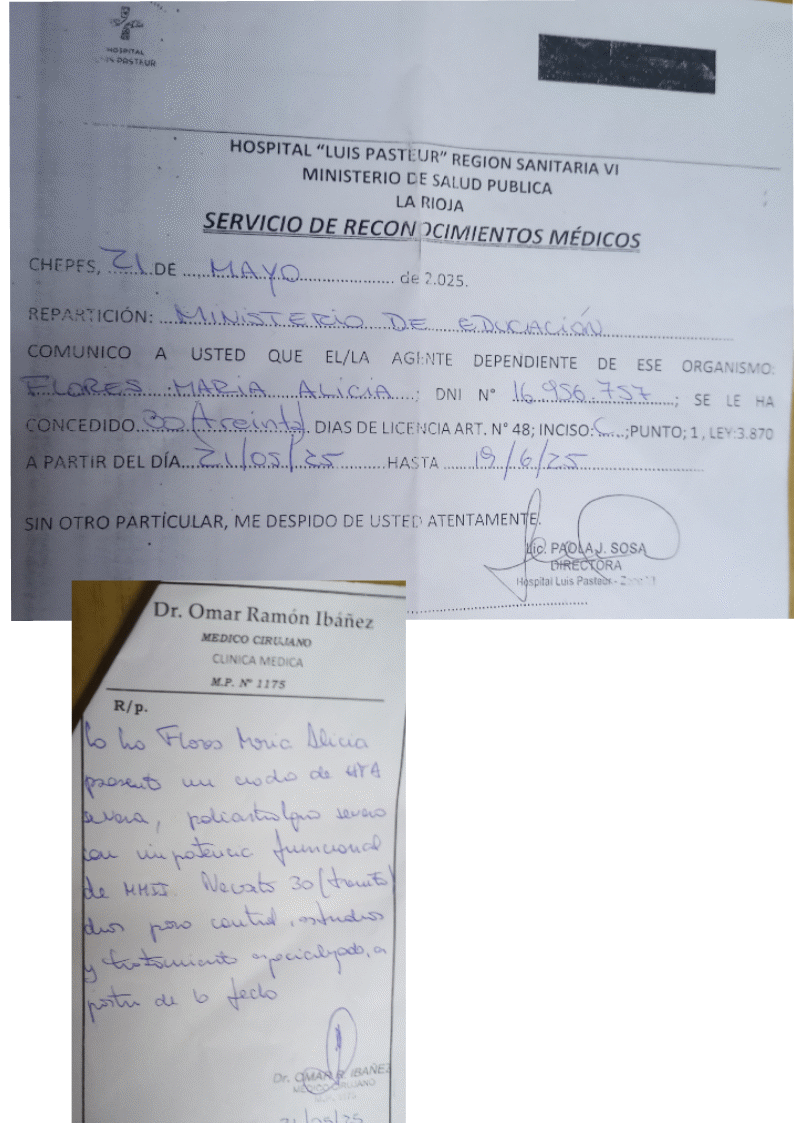 HOSPITAL
LUIS PASTEUR
HOSPITAL "LUIS PASTEUR" REGION SANITARIA VI
MINISTERIO DE SALUD PUBLICA
LA RIOJA
SERVICIO DE RECONOCIMIENTOS MÉDICOS
CHEPES, 21 DE MAYO de 2.025.
REPARTICIÓN: MINISTERIO DE EDUCACIÓN
COMUNICO A USTED QUE EL/LA AGENTE DEPENDIENTE DE ESE ORGANISMO:
FLORES MARIA ALICIA; DNI N° 16.956.757; SE LE HA
CONCEDIDO 30 (treinta). DIAS DE LICENCIA ART. N° 48; INCISO: C ;PUNTO; 1 , LEY:3.870
A PARTIR DEL DÍA 21/05/25 HASTA 19/6/25
SIN OTRO PARTÍCULAR, ME DESPIDO DE USTED ATENTAMENTE.
Lic. PAOLA J. SOSA
DIRECTORA
Hospital Luis Pasteur - Zona VI
Dr. Omar Ramón Ibáñez
MEDICO CIRUJANO
CLINICA MEDICA
M.P. Nº 1175
R/p.
Flores Maria Alicia
presenta un cuadro de HTA
severa, severo
con impotencia funcional
de MMII. Necesita 30 (treinta)
dias para control, estudios
y tratamiento especializado, a
partir de la fecha
Dr. OMAR R. IBAÑEZ
MEDICO CIRUJANO
21/05/25